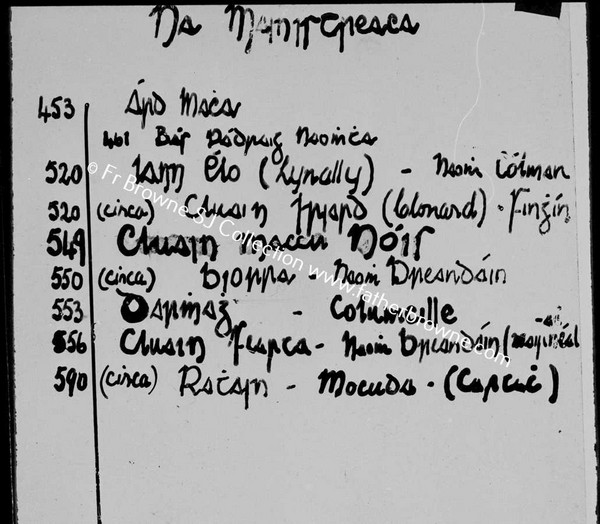 Na Mainistreaca
453 Árd Maċa
461 Bás Pádraig Naomċa
520 Lann Élo (Lynally) - Naom Colman
520 (circa) Cluain Iraird (Clonard) - Finġin
549 Cluain maccu Nóis
550 (circa) Biorra - Naom Breandáin
553 Darmaġ - Columcille
556 Cluain Fearta - Naom Breandáin
590 (circa) Raċain - Mocuda - (Carṫaċ)
© Fr Browne SJ Collection www.fatherbrowne.com